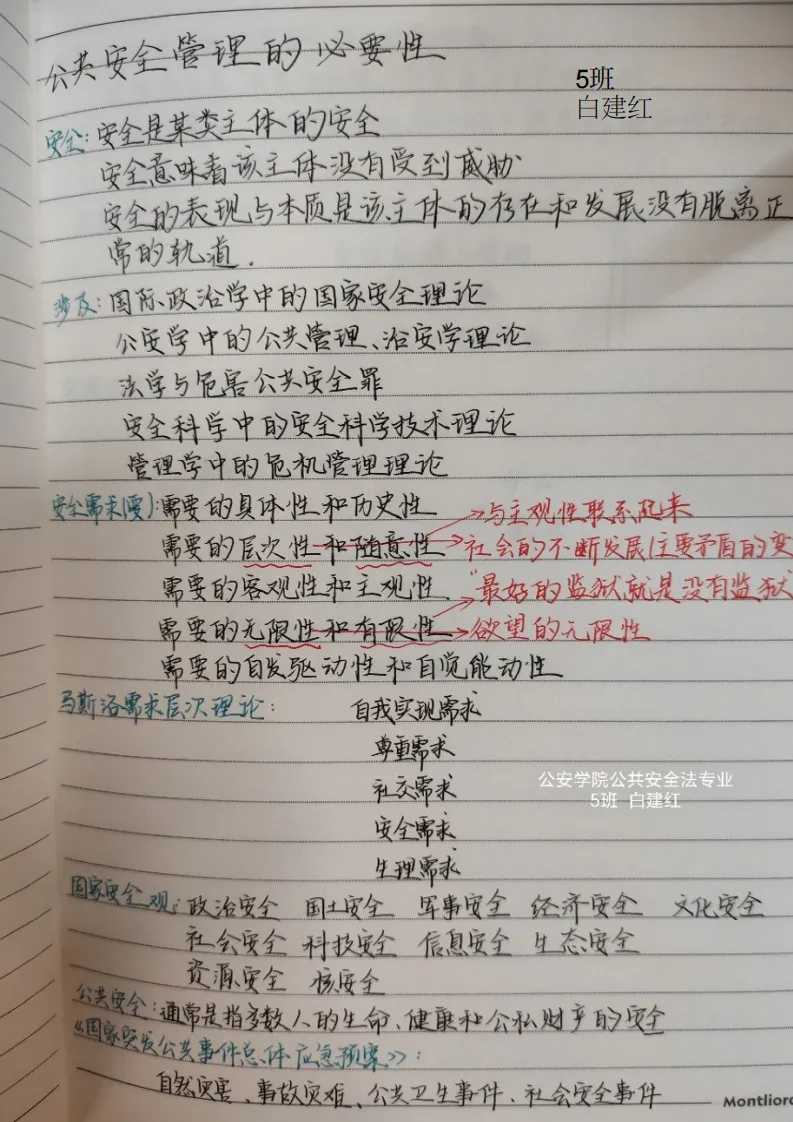 公共安全管理的必要性
5班
白建红
安全：安全是某类主体的安全
安全意味着该主体没有受到威胁
安全的表现与本质是该主体的存在和发展没有脱离正
常的轨道.
涉及：国际政治学中的国家安全理论
公安学中的公共管理、治安学理论
法学与危害公共安全罪
安全科学中的安全科学技术理论
管理学中的危机管理理论
安全需求(要)：需要的具体性和历史性
→与主观性联系起来
需要的层次性和随意性→社会的不断发展(主要矛盾的变
需要的客观性和主观性 "最好的监狱就是没有监狱"
需要的无限性和有限性→欲望的无限性
需要的自发驱动性和自觉能动性
马斯洛需求层次理论： 自我实现需求
尊重需求
社交需求
公安学院公共安全法专业
5班 白建红
安全需求
生理需求
国家安全观：政治安全 国土安全 军事安全 经济安全 文化安全
社会安全 科技安全 信息安全 生态安全
资源安全 核安全
公共安全：通常是指多数人的生命、健康和公私财产的安全
《国家突发公共事件总体应急预案》：
自然灾害、事故灾难、公共卫生事件、社会安全事件
Montliord